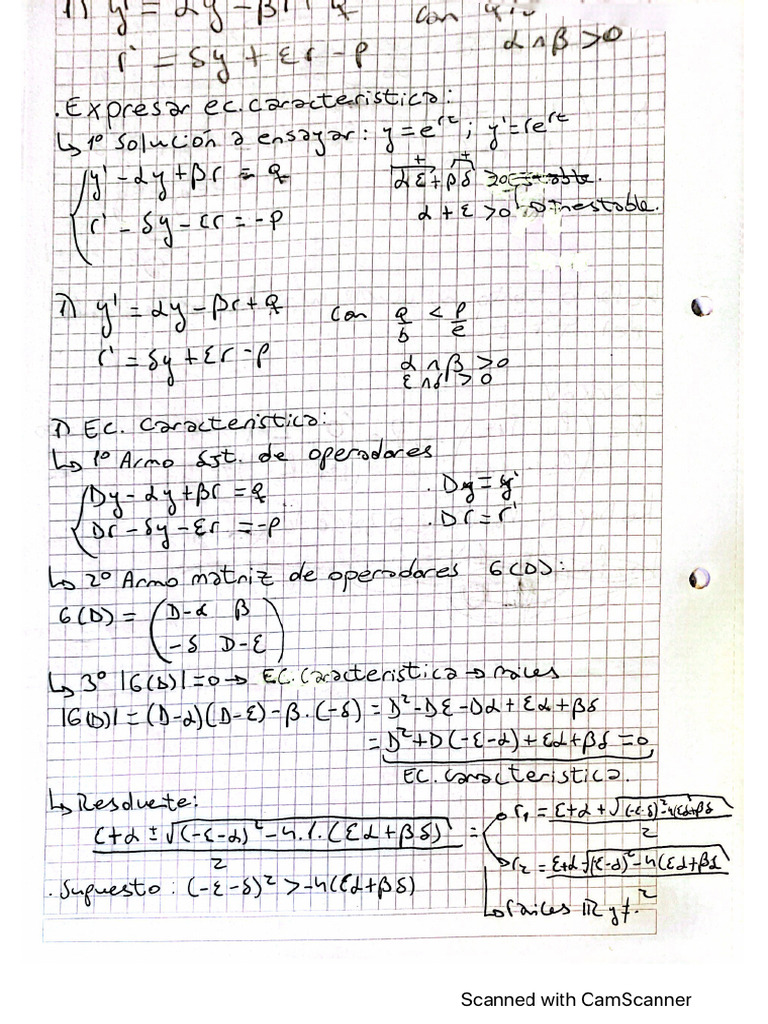 1) y' = αy - βr + q    con
r' = δy + εr - p    α ∧ β > 0
. Expresar ec. característica:
↳ 1º Solución a ensayar: y = e^rt ; y' = re^rt
y' - αy + βr = q    αε + βδ >
r' - δy - εr = -p    α + ε > 0 ↳ Inestable.
1) y' = αy - βr + q    con q/δ < p/ε
r' = δy + εr - p    α ∧ β > 0
ε ∧ δ > 0
1) Ec. Característica:
↳ 1º Armo sist. de operadores
Dy - αy + βr = q    . Dy = y'
Dr - δy - εr = -p    . Dr = r'
↳ 2º Armo matriz de operadores G(D):
G(D) = (D-α  β
-δ  D-ε)
↳ 3º |G(D)| = 0 → Ec. Característica → raíces
|G(D)| = (D-α)(D-ε) - β.(-δ) = D² - Dε - Dα + εα + βδ
= D² + D(-ε-α) + εα + βδ = 0
Ec. Característica.
↳ Resolvente:
ε+α ± √(-ε-α)² - 4.1.(εα+βδ) / 2 = r₁ = ε+α + √(-ε-δ)² - 4(εα+βδ / 2
r₂ = ε+α - √(-ε-δ)² - 4(εα+βδ / 2
. Supuesto: (-ε-δ)² > -4(εα+βδ)
↳ raíces ℝ y ≠.
Scanned with CamScanner